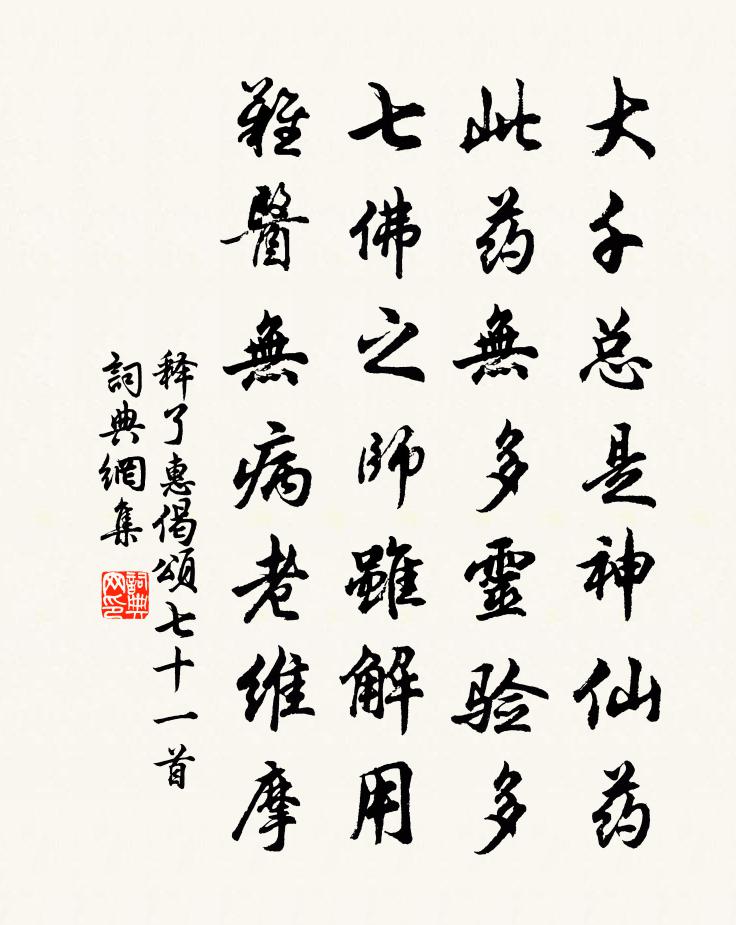 大千总是神仙药
此药無多靈验多
七佛之師雖解用
難醫無病老维摩
释了惠偈頌七十一首
詞典網集
詞典网印